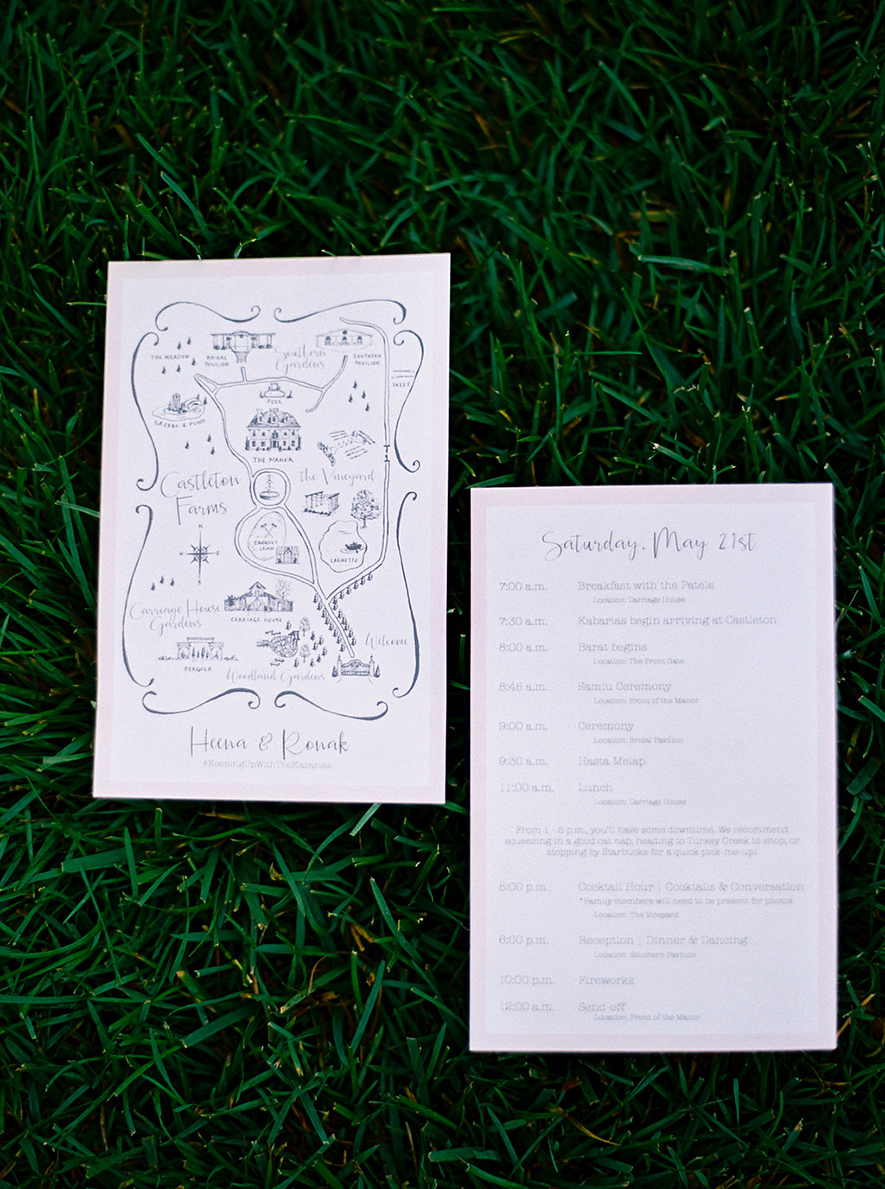 THE MEADOW
BRIDAL
PAVILION
Southern
Gardens
SOUTHERN
PAVILION
SKEET
POOL
GAZEBO & POND
THE MANOR
Castleton
Farms
the Vineyard
CROQUET
LAWN
LAGHETTO
Carriage House
Gardens
CARRIAGE HOUSE
PERGOLA
Woodland Gardens
Welcome
Heena & Ronak
#KeepingUpWithTheKabarias
Saturday, May 21st
7:00 a.m. Breakfast with the Patels
Location: Carriage House
7:30 a.m. Kabarias begin arriving at Castleton
8:00 a.m. Barat begins
Location: The Front Gate
8:45 a.m. Samiu Ceremony
Location: Front of the Manor
9:00 a.m. Ceremony
Location: Bridal Pavilion
9:30 a.m. Hasta Melap
11:00 a.m. Lunch
Location: Carriage House
From 1 - 5 p.m., you'll have some downtime. We recommend
squeezing in a good cat nap, heading to Turkey Creek to shop, or
stopping by Starbucks for a quick pick-me-up!
5:00 p.m. Cocktail Hour | Cocktails & Conversation
*Family members will need to be present for photos
Location: The Vineyard
6:00 p.m. Reception | Dinner & Dancing
Location: Southern Pavilion
10:00 p.m. Fireworks
12:00 a.m. Send-off
Location: Front of the Manor